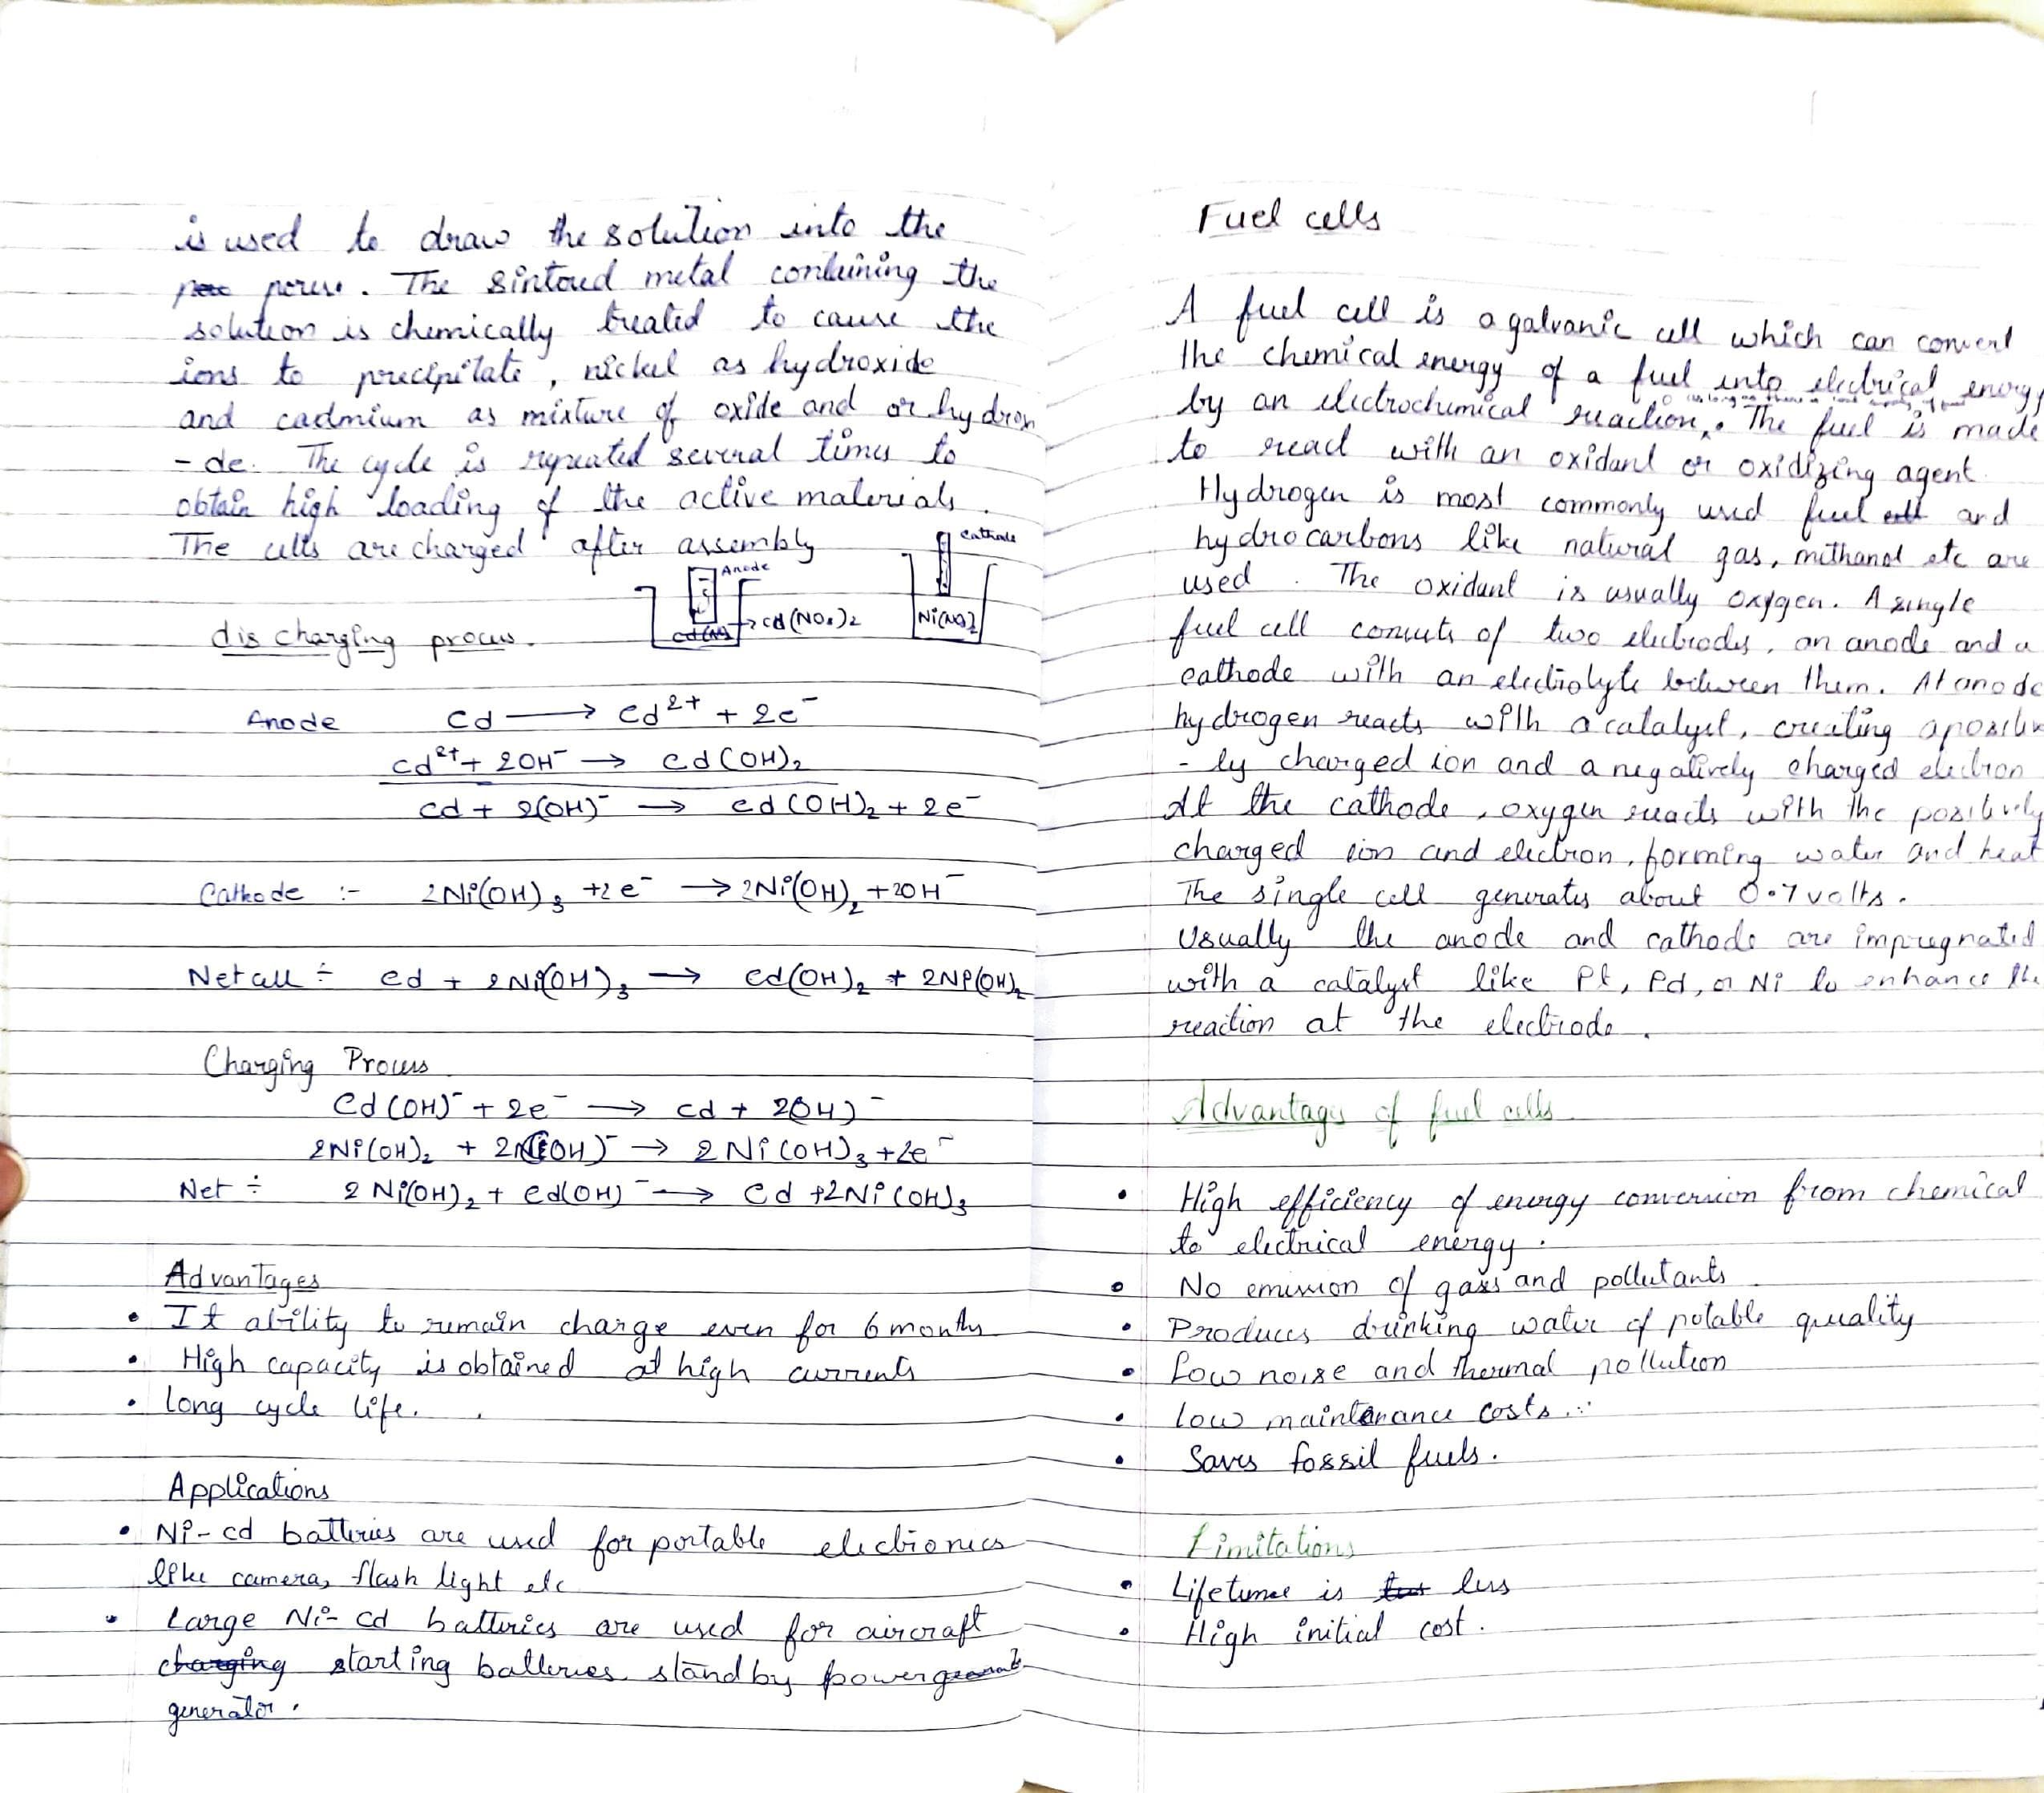 is used to draw the solution into the
pores. The sintered metal containing the
solution is chemically treated to cause the
ions to precipitate, nickel as hydroxide
and cadmium as mixture of oxide and or hydroxi
-de. The cycle is repeated several times to
obtain high loading of the active materials.
The cells are charged after assembly
Cathode
Anode
→ cd(NO₃)₂
Ni(NO₃)₂
discharging process.
Anode Cd ⟶ Cd²⁺ + 2e⁻
Cd²⁺ + 2OH⁻ → Cd(OH)₂
Cd + 2(OH)⁻ → Cd(OH)₂ + 2e⁻
Cathode :- 2Ni(OH)₃ +2e⁻ → 2Ni(OH)₂ + 2OH⁻
Net cell ÷ Cd + 2Ni(OH)₃ → Cd(OH)₂ + 2Ni(OH)₂
Charging Process
Cd(OH)⁻ + 2e⁻ → Cd + 2(OH)⁻
2Ni(OH)₂ + 2(OH)⁻ → 2Ni(OH)₃ +2e⁻
Net ÷ 2Ni(OH)₂ + Cd(OH)⁻ → Cd +2Ni(OH)₃
Advantages
• It ability to remain charge even for 6 months
• High capacity is obtained at high currents
• long cycle life.
Applications
• Ni-cd batteries are used for portable electronics
like camera, flash light etc
• Large Ni-cd batteries are used for aircraft
charging starting batteries standby power
generator.
Fuel cells
A fuel cell is a galvanic cell which can convert
the chemical energy of a fuel into electrical energy
as long as there is
by an electrochemical reaction. The fuel is made
to react with an oxidant or oxidizing agent.
Hydrogen is most commonly used fuel cell and
hydrocarbons like natural gas, methanol etc are
used. The oxidant is usually oxygen. A single
fuel cell consists of two electrodes, an anode and a
cathode with an electrolyte between them. At anode
hydrogen reacts with a catalyst, creating a positive
-ly charged ion and a negatively charged electron
At the cathode, oxygen reacts with the positively
charged ion and electron, forming water and heat
The single cell generates about 0.7 volts.
Usually the anode and cathode are impregnated
with a catalyst like Pt, Pd, or Ni to enhance the
reaction at the electrode.
Advantages of fuel cells
• High efficiency of energy conversion from chemical
to electrical energy.
• No emission of gases and pollutants
• Produces drinking water of potable quality
• Low noise and thermal pollution
• low maintenance costs.
• Saves fossil fuels.
Limitations
• Lifetime is less
• High initial cost.